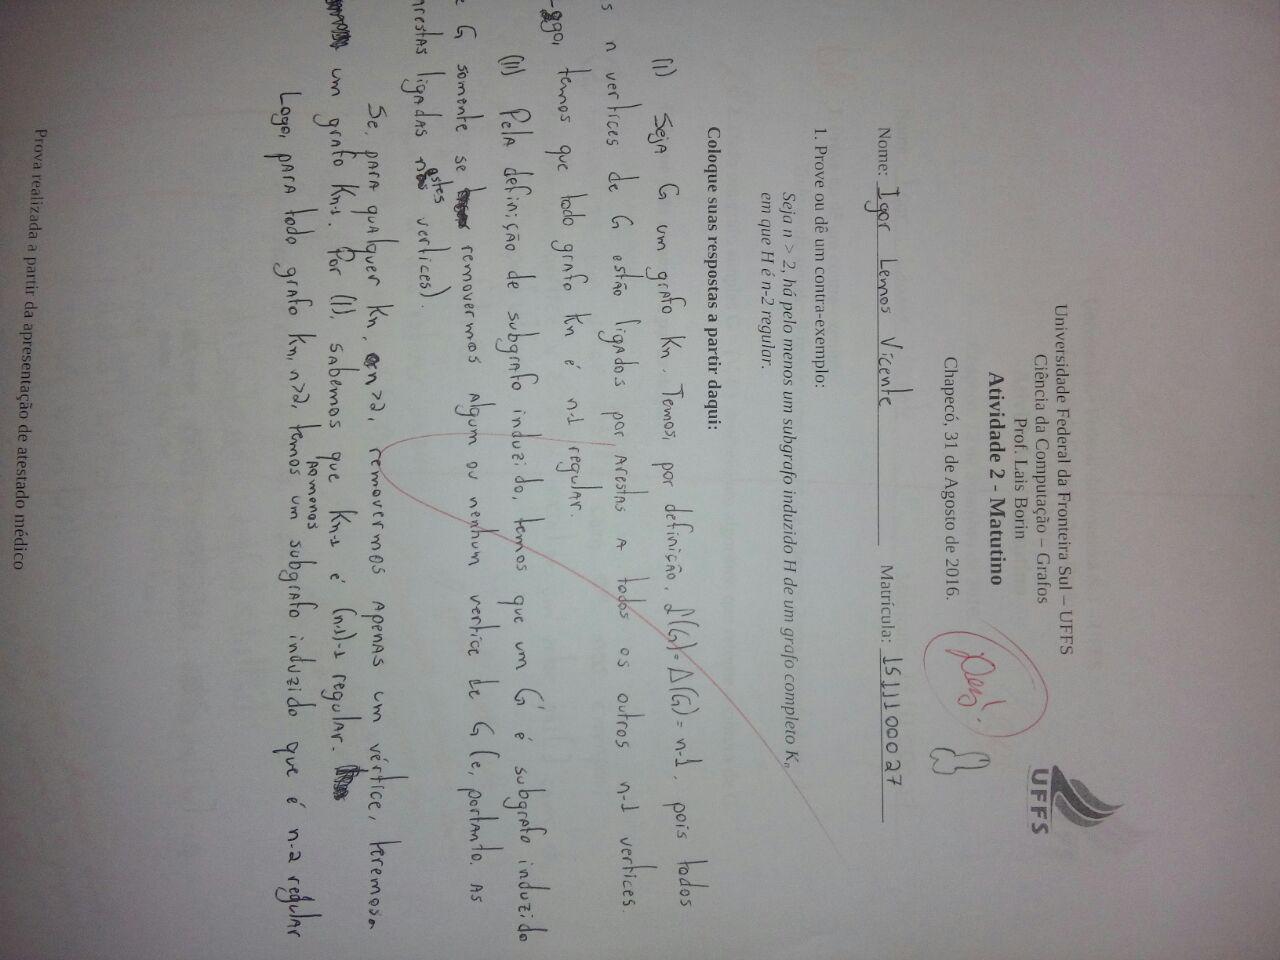 UFFS
Universidade Federal da Fronteira Sul – UFFS
Ciência da Computação – Grafos
Prof. Lais Borin
Atividade 2 - Matutino
Dez!
Chapecó, 31 de Agosto de 2016.
Nome: Igor Lemos Vicente Matrícula: 1511100027
1. Prove ou dê um contra-exemplo:
Seja n > 2, há pelo menos um subgrafo induzido H de um grafo completo Kn
em que H é n-2 regular.
Coloque suas respostas a partir daqui:
(I) Seja G um grafo Kn. Temos, por definição, δ(G) = Δ(G) = n-1, pois todos
s n vertices de G estão ligados por arestas a todos os outros n-1 vertices.
Logo, temos que todo grafo Kn é n-1 regular.
(II) Pela definição de subgrafo induzido, temos que um G' é subgrafo induzido
e G somente se removermos algum ou nenhum vertice de G (e, portanto, as
arestas ligadas estes vertices).
Se, para qualquer Kn, n>2, removermos apenas um vértice, teremos
um grafo Kn-1. Por (I), sabemos que Kn-1 é (n-1)-1 regular.
Logo, para todo grafo Kn, n>2, temos ao menos um subgrafo induzido que é n-2 regular
Prova realizada a partir da apresentação de atestado médico